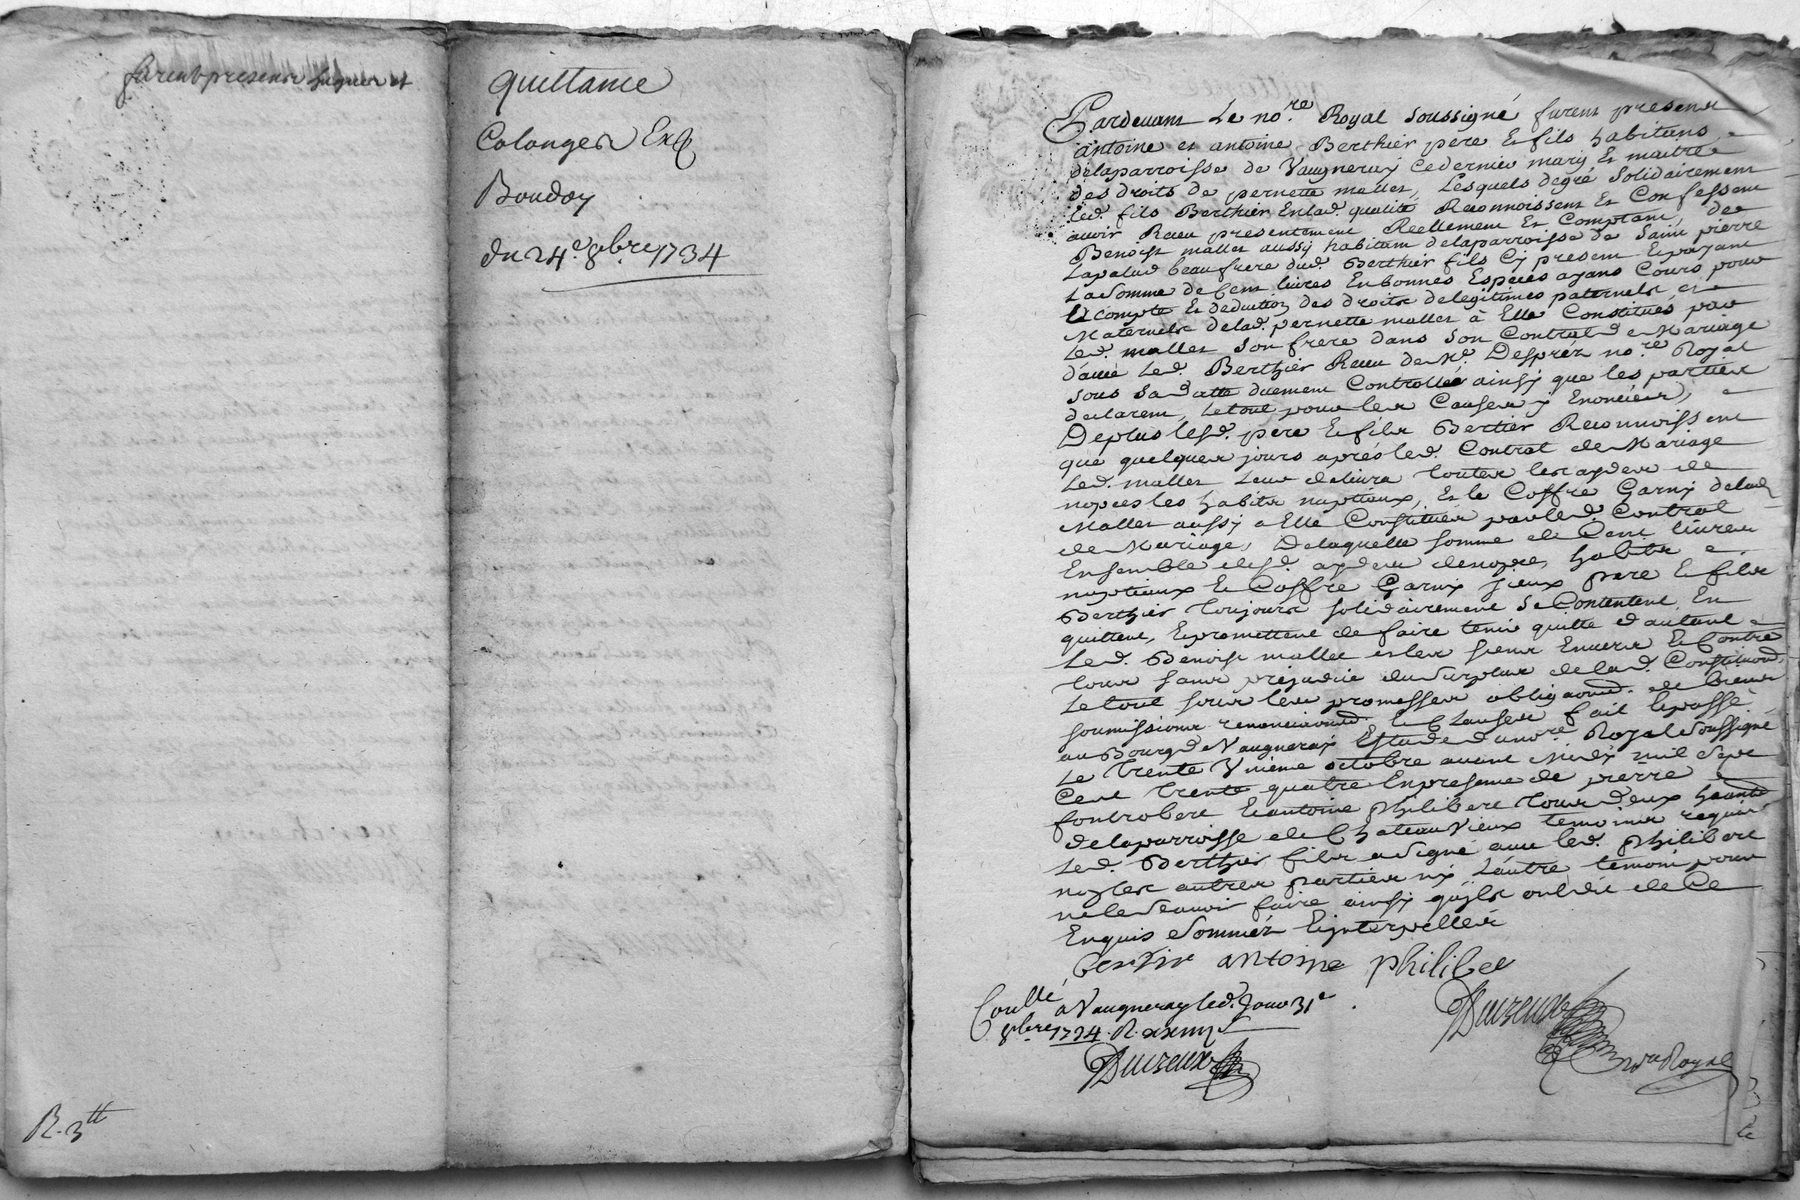 furent presens
R. 3tt
quittance
Colanges Ex
Boudoy
du 24e 8bre 1734
Pardevant Le nore Royal soussigné furent presens
antoine et antoine Berthier pere & fils habitans
delaparroisse de Vaugneray Cedernier mary Et maitre
des droits de pernette mallet, Lesquels degré solidairement
led. fils Berthier Enlad. qualité Reconnoissent Et Confessent
avoir Receu presentement Reellement Et Comptant, de
Benoist mallet aussy habitant delaparroisse de Saint pierre
Lapalud beaufrere dud. Berthier fils Cy present Epayant
La Somme de Cent livres En bonnes Especes ayans Cours pour
acompte Et deduction des droits delegitimes paternels et
Maternels delad. pernette mallet à Elle Constitués par
Led. mallet Son frere dans Son Contrat de Mariage
d'avec Led. Berthier Receu de Me Desprez nore Royal
sous Sa datte duement Controllée ainsy que les parties
declarent, Letout pour les Causes y Enoncées,
Deplus lesd. pere & fils Bertier Reconnoissent
que quelques jours apres led. Contrat de Mariage
Led. mallet Leur delivra toutes les aydes de
nopces les habits nuptiaux, Et le Coffre Garny delad.
Mallet aussy a Elle Constitués parled. Contrat
de Mariage, Delaquelle somme de Cent livres
Ensemble desd. aydes denopces, habits
nuptiaux & Coffre Garny yceux pere & fils
Berthier toujours solidairement Se Contentent, En
quittent, Epromettent de faire tenir quitte
Led. Benoist mallet et les siens Envers & Contre
tous sans prejudice du surplus de lad. Constituaon.
Le tout sous les promesses obligaons. de biens
soumissions renonciaons. & Clauses fait Epassé
au Bourg de Vaugneray Estude dunore Royal Soussigné
Le trente Unieme octobre avant Midy mil Sept
Cent trente quatre Enpresence de pierre
fontrobert Et antoine Philibert tous deux
delaparroisse de Chateauvieux temoins requis
Led. Berthier fils a Signé avec led. Philibert
non les autres parties ny L'autre temoin pour
ne le Scavoir faire ainsy qu'ils ont dit de Ce
Enquis Sommés & ynterpellés
bertir antoine philibet
Conllé a Vaugneray led. Jour 31e
8bre 1734. R.
Duizeux
Duizeux
nore Royal